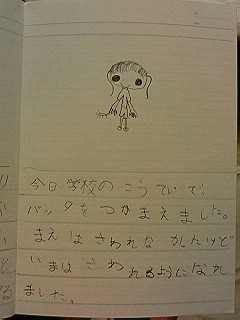 今日学校のこうていで、
バッタをつかまえました。
まえはさわれなかたけど
いまはさわれるようになれ
ました。